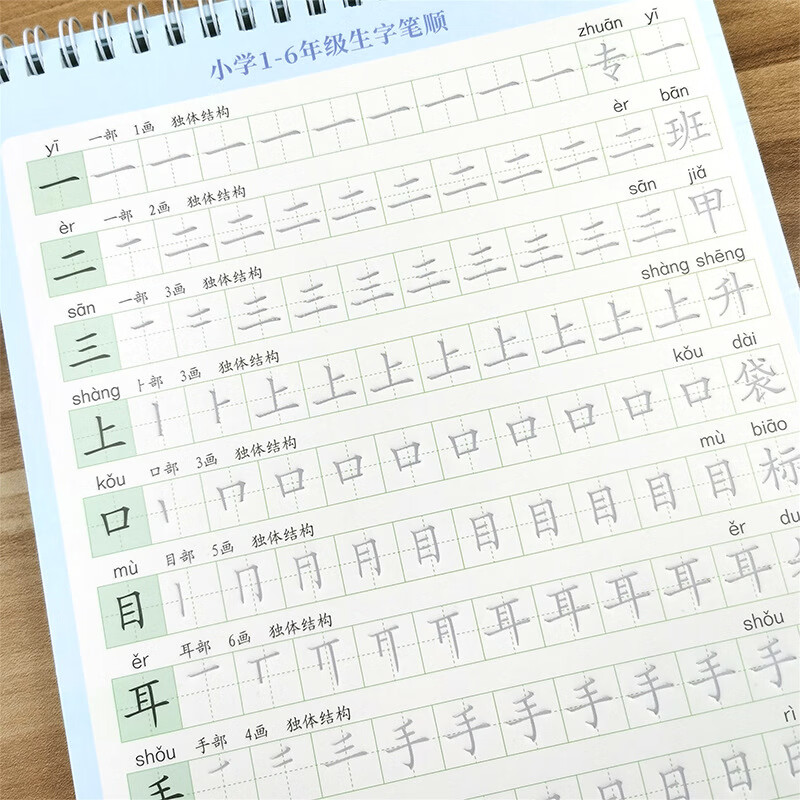 小学1-6年级生字笔顺
yī 一部 1画 独体结构 zhuān yī
一 一 一 一 一 一 一 一 一 一 专 一
èr 一部 2画 独体结构 èr bān
二 一 二 二 二 二 二 二 二 二 二 班
sān 一部 3画 独体结构 sān jiǎ
三 一 二 三 三 三 三 三 三 三 三 甲
shàng 卜部 3画 独体结构 shàng shēng
上 丨 ⺊ 上 上 上 上 上 上 上 上 升
kǒu 口部 3画 独体结构 kǒu dài
口 丨 冂 口 口 口 口 口 口 口 口 袋
mù 目部 5画 独体结构 mù biāo
目 丨 冂 目 目 目 目 目 目 标
ěr 耳部 6画 独体结构 ěr
耳 一 丅 耳 耳 耳 耳 耳
shǒu 手部 4画 独体结构 shǒu
手 手 手 手 手 手 手 手
rì
日 日 日